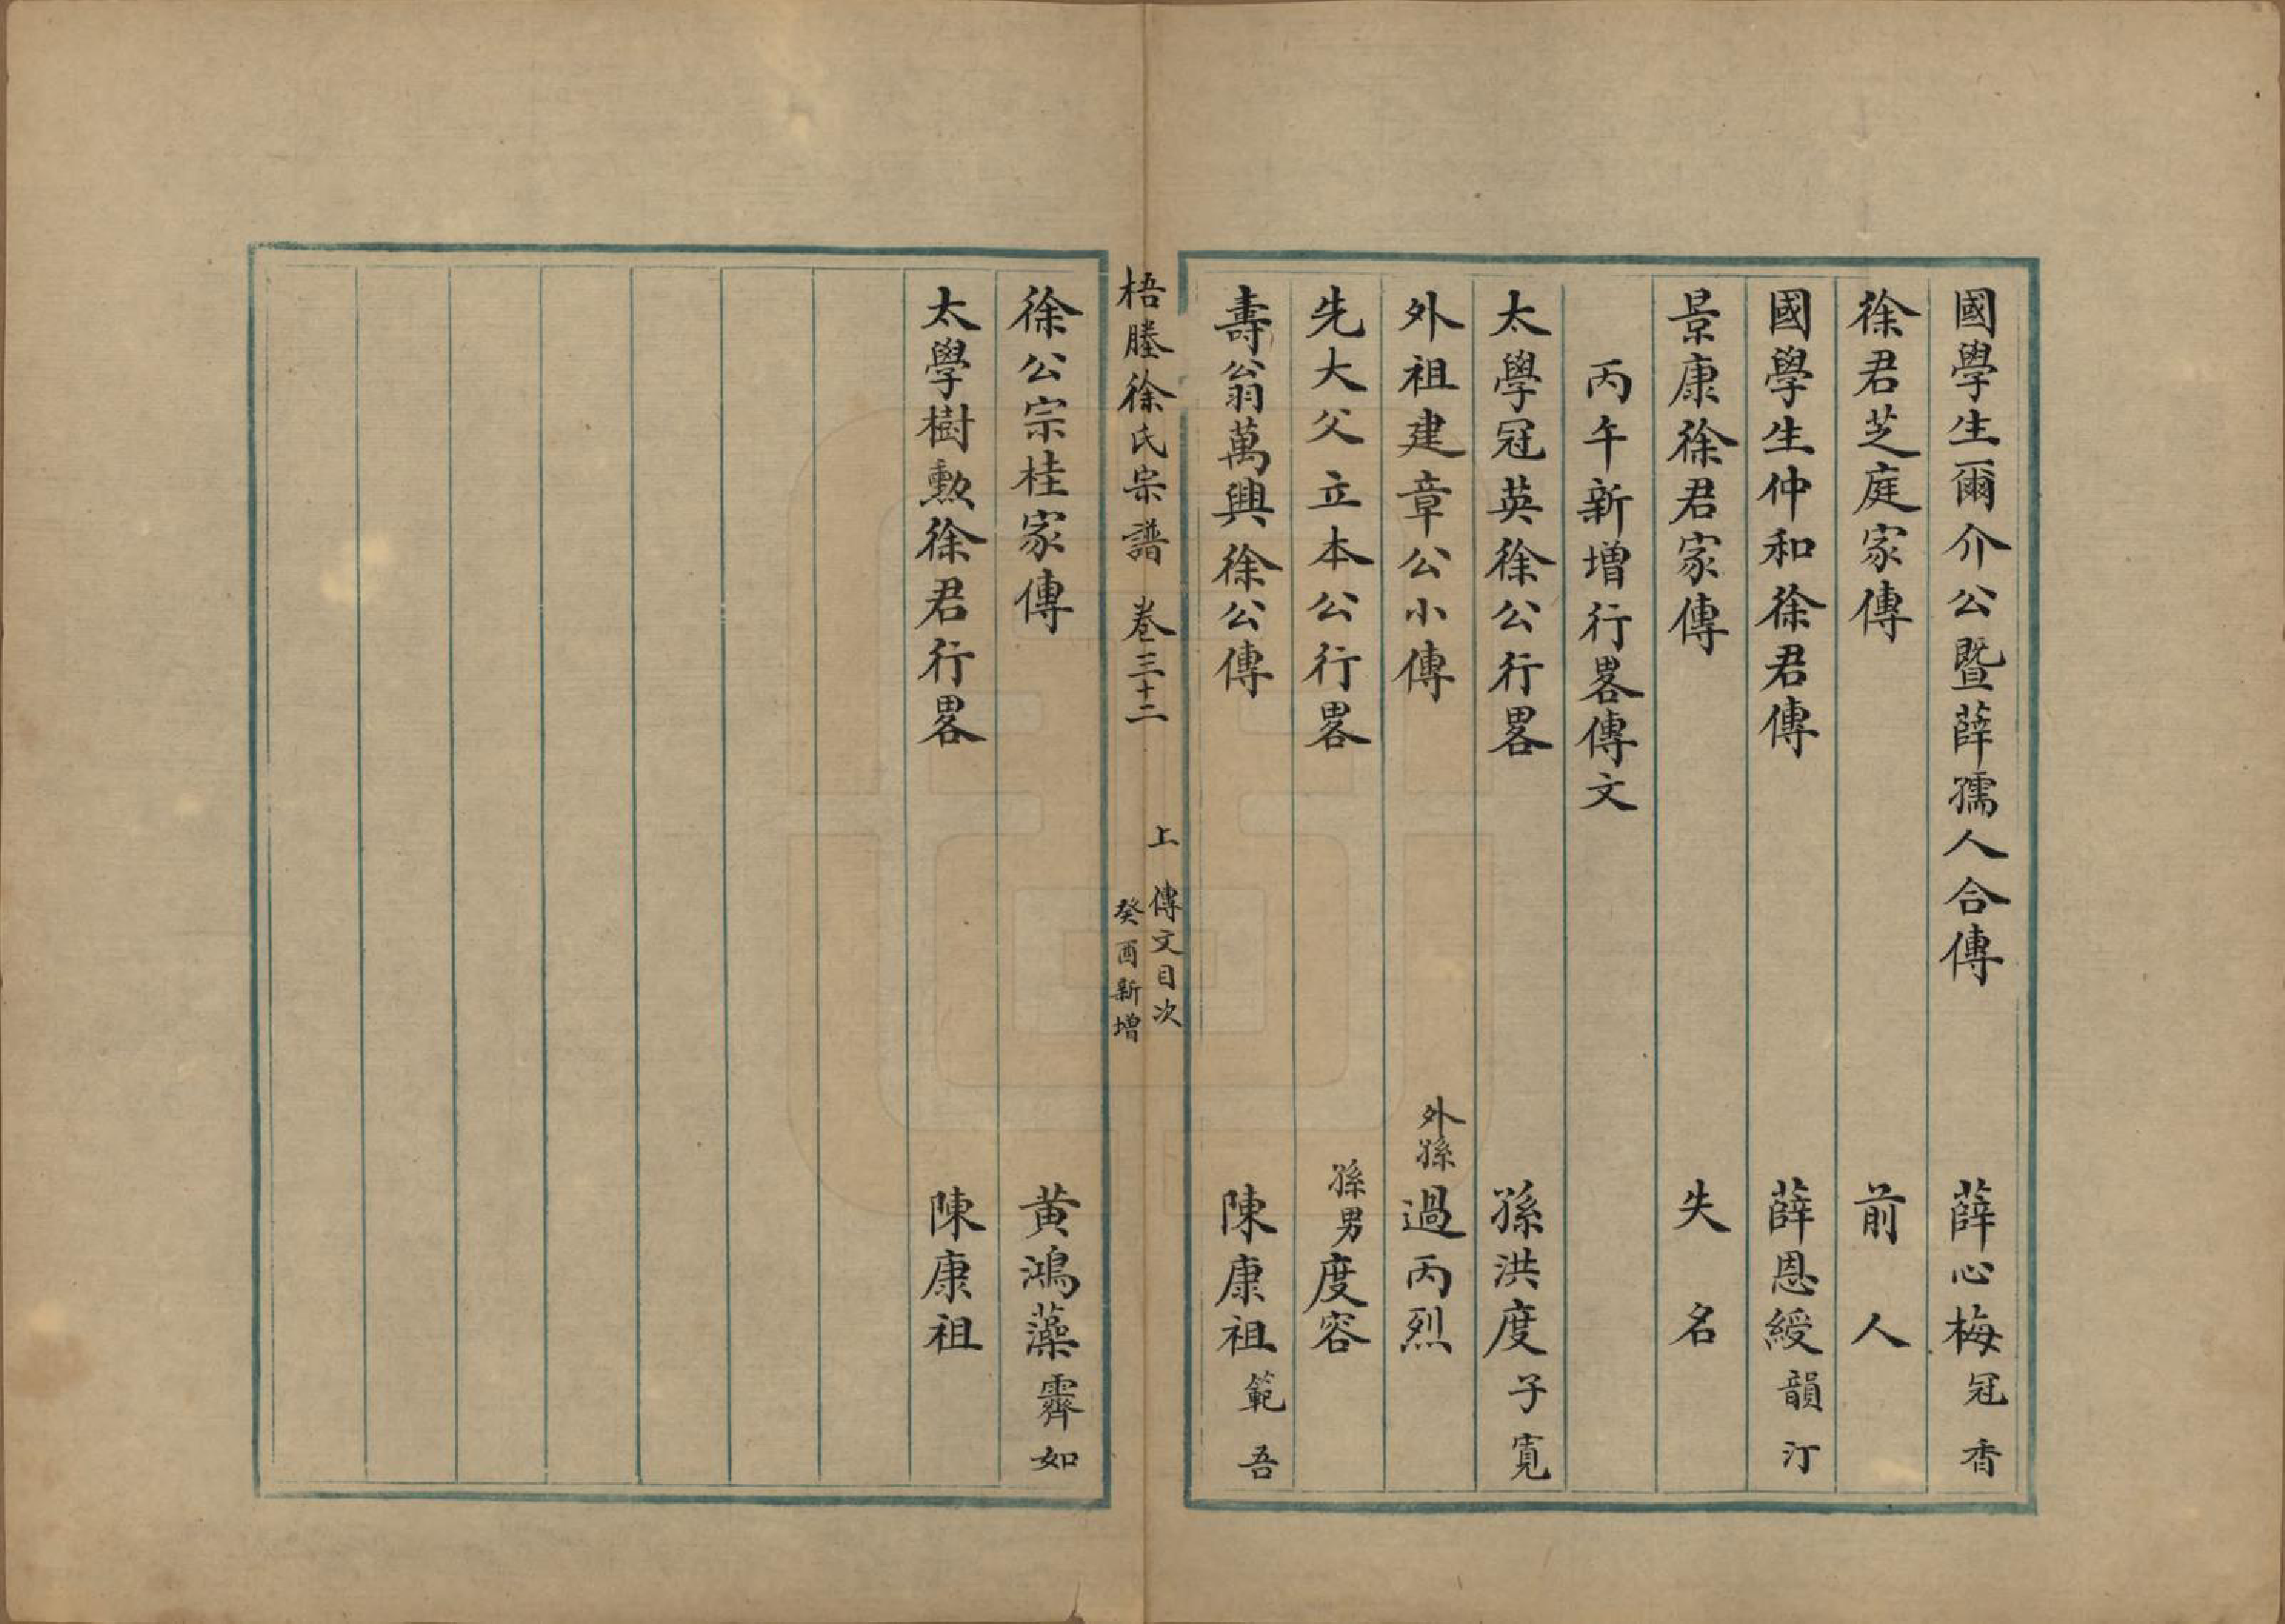 國學生爾介公暨薛孺人合傳 薛心梅冠香
徐君芝庭家傳 前人
國學生仲和徐君傳 薛恩綬韻汀
景康徐君家傳 失名
丙午新增行畧傳文
太學冠英徐公行畧 孫洪度子寬
外祖建章公小傳 外孫過丙烈
先大父立本公行畧 孫男度容
壽翁萬興徐公傳 陳康祖範吾
梧塍徐氏宗譜 卷三十二 上 傳文目次
癸酉新增
徐公宗桂家傳 黄鴻藻霽如
太學樹勲徐君行畧 陳康祖